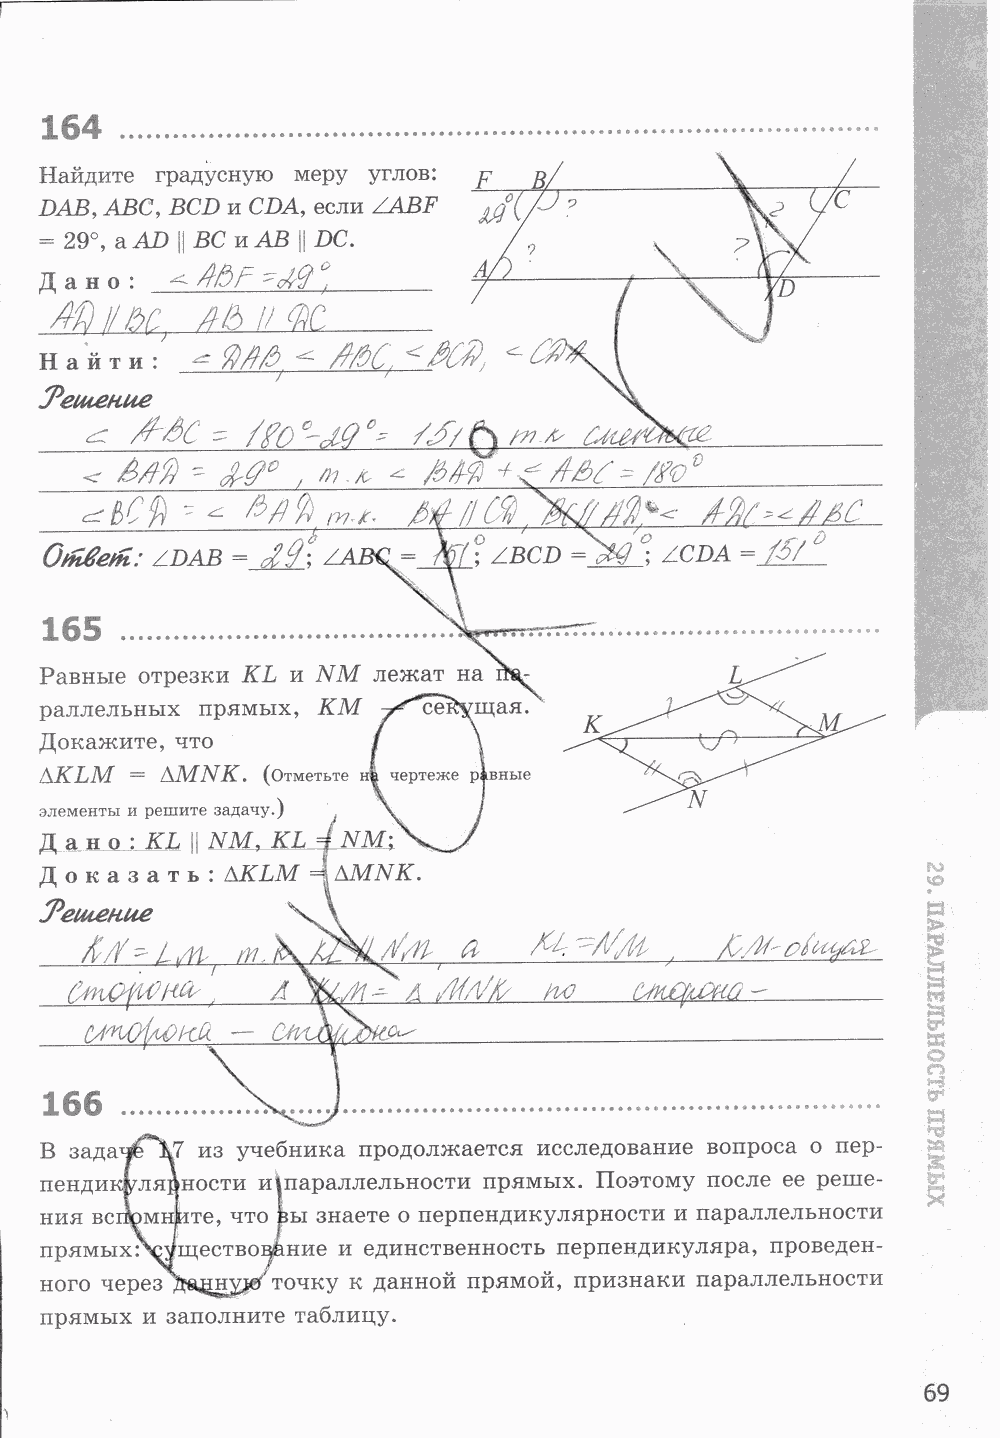 164
Найдите градусную меру углов:
DAB, ABC, BCD и CDA, если ∠ABF
= 29°, а AD || BC и AB || DC.
F B C
29° ? ?
A ? ? D
Дано: < ABF = 29°,
AD || BC, AB || DC
Найти: < DAB, < ABC, < BCD, < CDA
Решение
< ABC = 180° - 29° = 151° т.к смежные
< BAD = 29°, т.к < BAD + < ABC = 180°
< BCD = < BAD, т.к. BA || CD, BC || AD, < ADC = < ABC
Ответ: ∠DAB = 29°; ∠ABC = 151°; ∠BCD = 29°; ∠CDA = 151°
165
Равные отрезки KL и NM лежат на па-
раллельных прямых, KM — секущая.
Докажите, что
ΔKLM = ΔMNK. (Отметьте на чертеже равные
элементы и решите задачу.)
L
K M
N
Дано: KL || NM, KL = NM;
Доказать: ΔKLM = ΔMNK.
Решение
KN = LM, т.к KL || NM, а KL = NM, KM - общая
сторона, Δ KLM = Δ MNK по сторона -
сторона - сторона
166
В задаче 17 из учебника продолжается исследование вопроса о пер-
пендикулярности и параллельности прямых. Поэтому после ее реше-
ния вспомните, что вы знаете о перпендикулярности и параллельности
прямых: существование и единственность перпендикуляра, проведен-
ного через данную точку к данной прямой, признаки параллельности
прямых и заполните таблицу.
29. ПАРАЛЛЕЛЬНОСТЬ ПРЯМЫХ
69